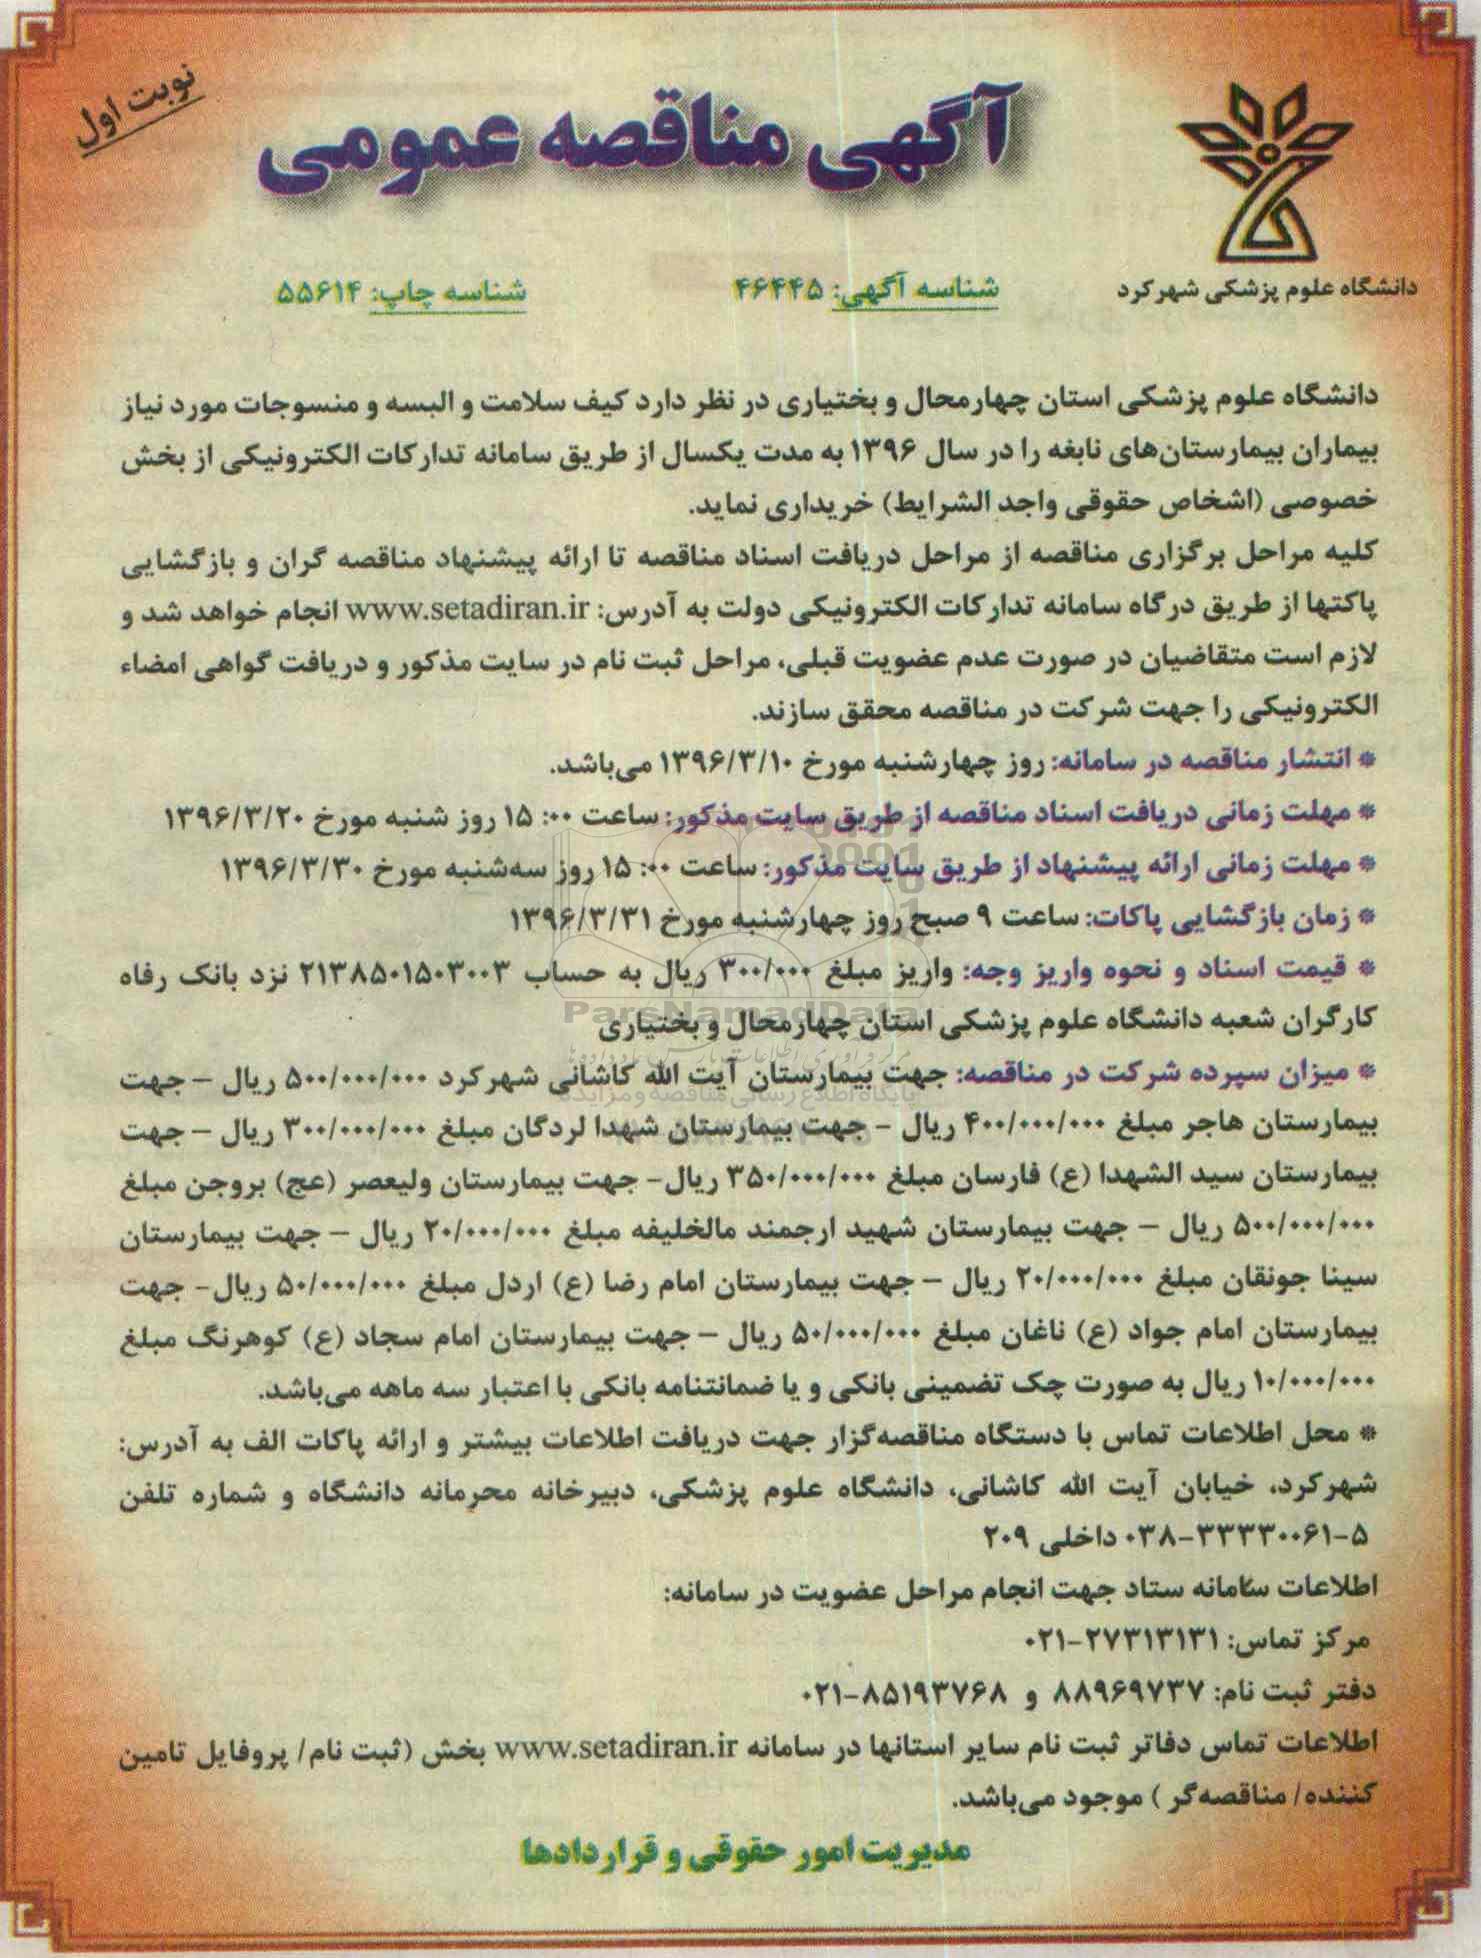 نوبت اول
آگهی مناقصه عمومی
دانشگاه علوم پزشکی شهرکرد
شناسه آگهی: ۴۶۴۴۵
شناسه چاپ: ۵۵۶۱۴
دانشگاه علوم پزشکی استان چهارمحال و بختیاری در نظر دارد کیف سلامت و البسه و منسوجات مورد نیاز
بیماران بیمارستان‌های نابغه را در سال ۱۳۹۶ به مدت یکسال از طریق سامانه تدارکات الکترونیکی از بخش
خصوصی (اشخاص حقوقی واجد الشرایط) خریداری نماید.
کلیه مراحل برگزاری مناقصه از مراحل دریافت اسناد مناقصه تا ارائه پیشنهاد مناقصه گران و بازگشایی
پاکتها از طریق درگاه سامانه تدارکات الکترونیکی دولت به آدرس: www.setadiran.ir انجام خواهد شد و
لازم است متقاضیان در صورت عدم عضویت قبلی، مراحل ثبت نام در سایت مذکور و دریافت گواهی امضاء
الکترونیکی را جهت شرکت در مناقصه محقق سازند.
* انتشار مناقصه در سامانه: روز چهارشنبه مورخ ۱۳۹۶/۳/۱۰ می‌باشد.
* مهلت زمانی دریافت اسناد مناقصه از طریق سایت مذکور: ساعت ۰۰: ۱۵ روز شنبه مورخ ۱۳۹۶/۳/۲۰
* مهلت زمانی ارائه پیشنهاد از طریق سایت مذکور: ساعت ۰۰: ۱۵ روز سه‌شنبه مورخ ۱۳۹۶/۳/۳۰
* زمان بازگشایی پاکات: ساعت ۹ صبح روز چهارشنبه مورخ ۱۳۹۶/۳/۳۱
* قیمت اسناد و نحوه واریز وجه: واریز مبلغ ۳۰۰/۰۰۰ ریال به حساب ۲۱۳۸۵۰۱۵۰۳۰۰۳ نزد بانک رفاه
کارگران شعبه دانشگاه علوم پزشکی استان چهارمحال و بختیاری
ParsNamadData
پایگاه اطلاع رسانی مناقصه و مزایده
* میزان سپرده شرکت در مناقصه: جهت بیمارستان آیت الله کاشانی شهرکرد ۵۰۰/۰۰۰/۰۰۰ ریال – جهت
بیمارستان هاجر مبلغ ۴۰۰/۰۰۰/۰۰۰ ریال - جهت بیمارستان شهدا لردگان مبلغ ۳۰۰/۰۰۰/۰۰۰ ریال – جهت
بیمارستان سید الشهدا (ع) فارسان مبلغ ۳۵۰/۰۰۰/۰۰۰ ریال- جهت بیمارستان ولیعصر (عج) بروجن مبلغ
۵۰۰/۰۰۰/۰۰۰ ریال – جهت بیمارستان شهید ارجمند مالخلیفه مبلغ ۲۰/۰۰۰/۰۰۰ ریال – جهت بیمارستان
سینا جونقان مبلغ ۲۰/۰۰۰/۰۰۰ ریال – جهت بیمارستان امام رضا (ع) اردل مبلغ ۵۰/۰۰۰/۰۰۰ ریال- جهت
بیمارستان امام جواد (ع) ناغان مبلغ ۵۰/۰۰۰/۰۰۰ ریال – جهت بیمارستان امام سجاد (ع) کوهرنگ مبلغ
۱۰/۰۰۰/۰۰۰ ریال به صورت چک تضمینی بانکی و یا ضمانتنامه بانکی با اعتبار سه ماهه می‌باشد.
* محل اطلاعات تماس با دستگاه مناقصه‌گزار جهت دریافت اطلاعات بیشتر و ارائه پاکات الف به آدرس:
شهرکرد، خیابان آیت الله کاشانی، دانشگاه علوم پزشکی، دبیرخانه محرمانه دانشگاه و شماره تلفن
۰۳۸-۳۳۳۳۰۰۶۱-۵ داخلی ۲۰۹
اطلاعات سامانه ستاد جهت انجام مراحل عضویت در سامانه:
مرکز تماس: ۰۲۱-۲۷۳۱۳۱۳۱
دفتر ثبت نام: ۸۸۹۶۹۷۳۷ و ۰۲۱-۸۵۱۹۳۷۶۸
اطلاعات تماس دفاتر ثبت نام سایر استانها در سامانه www.setadiran.ir بخش (ثبت نام/ پروفایل تامین
کننده/ مناقصه‌گر ) موجود می‌باشد.
مدیریت امور حقوقی و قراردادها